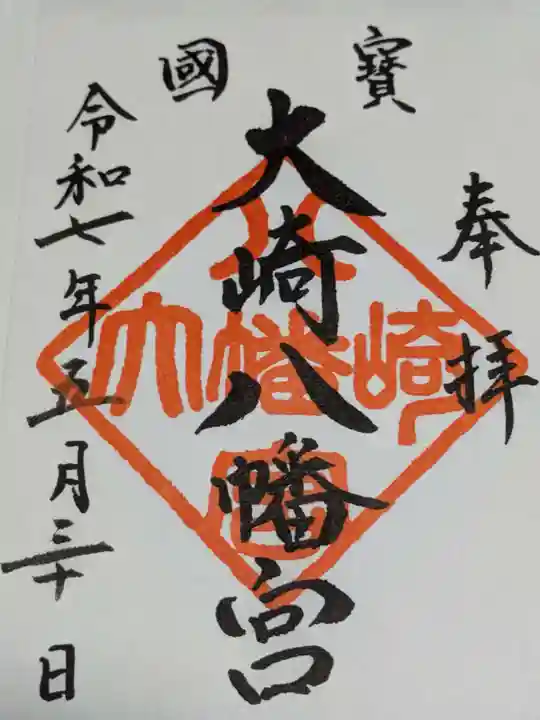 寶國
奉拝
大崎八幡宮
令和七年五月三十日
崎幡大
八